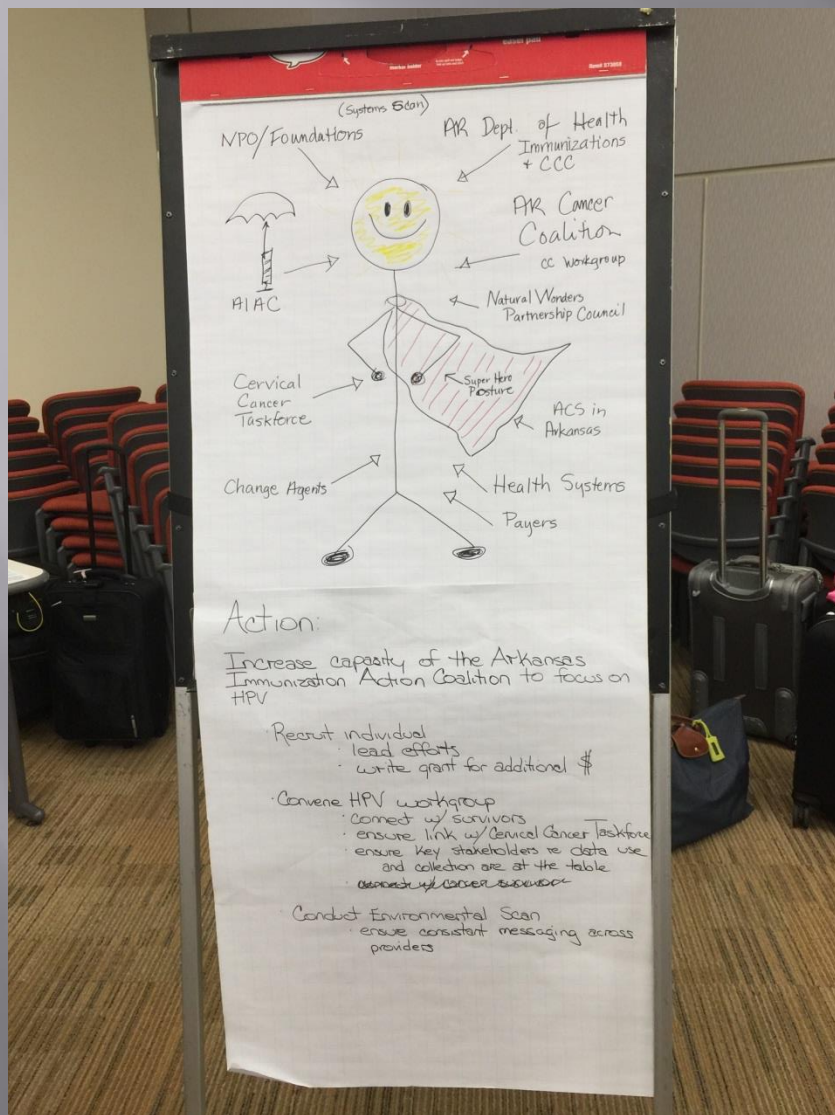 easel pad
(Systems Scan)
NPO/Foundations
AR Dept. of Health
Immunizations
+ CCC
AR Cancer
Coalition
CC Workgroup
AIAC
Natural Wonders
Partnership Council
Super Hero
Posture
Cervical
Cancer
Taskforce
ACS in
Arkansas
Change Agents
Health Systems
Payers
Action:
Increase capasity of the Arkansas
Immunization Action Coalition to focus on
HPV
· Recruit individual
· lead efforts
· write grant for additional $
· Convene HPV workgroup
· connect w/ survivors
· ensure link w/ Cervical Cancer Taskforce
· ensure key stakeholders re data use
and collection are at the table
· Conduct Environmental Scan
· ensure consistent messaging across
providers